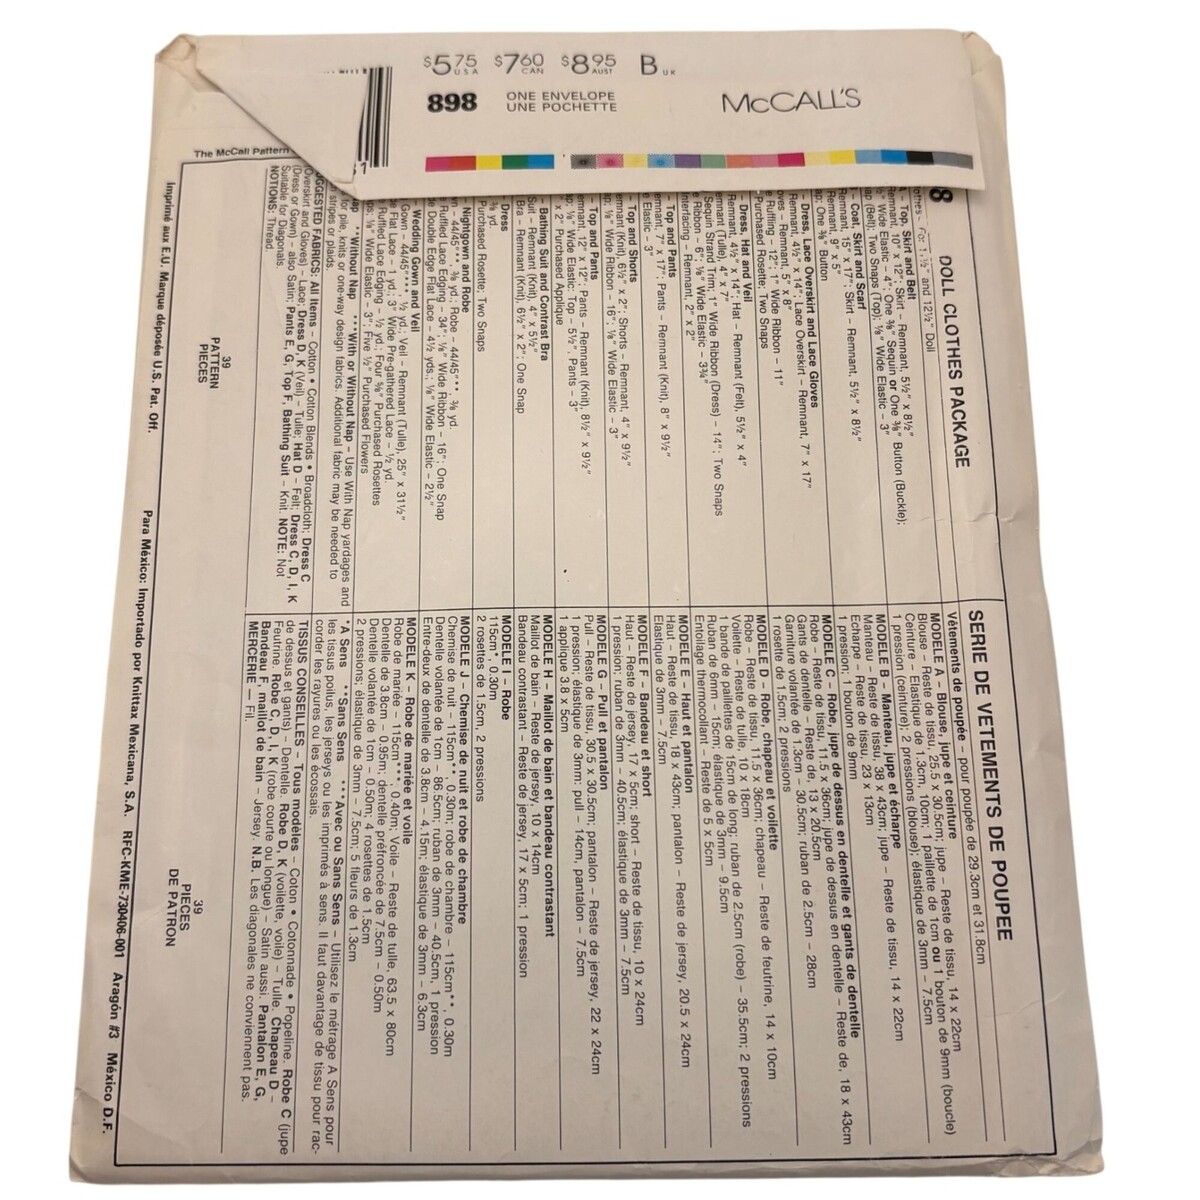 $5.75 USA $7.60 CAN $8.95 AUST B UK
898 ONE ENVELOPE
UNE POCHETTE
McCALL'S
The McCall Pattern
8 DOLL CLOTHES PACKAGE
For 11½" and 12½" Doll
Top, Skirt and Belt
Remnant, 10" x 12"; Skirt – Remnant, 5½" x 8½"
Wide Elastic – 4"; One ⅜" Sequin or One ⅜" Button (Buckle);
(Belt); Two Snaps (Top); ⅛" Wide Elastic – 3"
Coat, Skirt and Scarf
Remnant, 15" x 17"; Skirt – Remnant, 5½" x 8½"
Remnant, 9" x 5"
One ⅜" Button
Dress, Lace Overskirt and Lace Gloves
Remnant, 4½" x 14"; Lace Overskirt – Remnant, 7" x 17"
– Remnant, 5" x 8"
Ruffling – 12"; 1" Wide Ribbon – 11"
Purchased Rosette; Two Snaps
Dress, Hat and Veil
Remnant, 4½" x 14"; Hat – Remnant (Felt), 5½" x 4"
Remnant (Tulle), 4" x 7"
Sequin Strand Trim; 1" Wide Ribbon (Dress) – 14"; Two Snaps
Ribbon – 6"; ⅛" Wide Elastic – 3¾"
Interfacing – Remnant, 2" x 2"
Top and Pants
Remnant, 7" x 17"; Pants – Remnant (Knit), 8" x 9½"
Elastic – 3"
Top and Shorts
Remnant (Knit), 6½" x 2"; Shorts – Remnant, 4" x 9½"
⅛" Wide Ribbon – 16"; ⅛" Wide Elastic – 3"
Top and Pants
Remnant, 12" x 12"; Pants – Remnant (Knit), 8½" x 9½"
⅛" Wide Elastic: Top – 5½", Pants – 3"
x 2" Purchased Applique
Bathing Suit and Contrast Bra
Suit – Remnant (Knit), 4" x 5½"
Bra – Remnant (Knit), 6½" x 2"; One Snap
Dress
⅜ yd.
Purchased Rosette; Two Snaps
Nightgown and Robe
– 44/45"**, ⅜ yd.; Robe – 44/45"***, ⅜ yd.
Ruffled Lace Edging – 34"; ⅛" Wide Ribbon – 16"; One Snap
Double Edge Flat Lace – 4½ yds.; ⅛" Wide Elastic – 2½"
Wedding Gown and Veil
Gown – 44/45"***, ½ yd.; Veil – Remnant (Tulle), 25" x 31½"
Flat Lace – 1 yd.; 3" Wide Pre-gathered Lace – ½ yd.
Ruffled Lace Edging – ½ yd.; Four ⅝" Purchased Rosettes
⅛" Wide Elastic – 3"; Five ½" Purchased Flowers
Nap **Without Nap ***With or Without Nap – Use With Nap yardages and
for pile, knits or one-way design fabrics. Additional fabric may be needed to
stripes or plaids.
SUGGESTED FABRICS: All Items – Cotton • Cotton Blends • Broadcloth; Dress C
(Overskirt and Gloves) – Lace; Dress D, K (Veil) – Tulle; Hat D – Felt; Dress C, D, I, K
(Dress or Gown) – also Satin; Pants E, G, Top F, Bathing Suit – Knit. NOTE: Not
Suitable for Diagonals.
NOTIONS: Thread.
39
PATTERN
PIECES
SERIE DE VETEMENTS DE POUPEE
Vêtements de poupée – pour poupée de 29.3cm et 31.8cm
MODELE A – Blouse, jupe et ceinture
Blouse – Reste de tissu, 25.5 x 30.5cm; jupe – Reste de tissu, 14 x 22cm
Ceinture – Elastique de 1.3cm, 10cm; 1 paillette de 1cm ou 1 bouton de 9mm (boucle)
1 pression (ceinture); 2 pressions (blouse); élastique de 3mm – 7.5cm
MODELE B – Manteau, jupe et écharpe
Manteau – Reste de tissu, 38 x 43cm; jupe – Reste de tissu, 14 x 22cm
Echarpe – Reste de tissu, 23 x 13cm
1 pression; 1 bouton de 9mm
MODELE C – Robe, jupe de dessus en dentelle et gants de dentelle
Robe – Reste de tissu, 11.5 x 36cm; jupe de dessus en dentelle – Reste de, 18 x 43cm
Gants de dentelle – Reste de, 13 x 20.5cm
Garniture volantée de 1.3cm – 30.5cm; ruban de 2.5cm – 28cm
1 rosette de 1.5cm; 2 pressions
MODELE D – Robe, chapeau et voilette
Robe – Reste de tissu, 11.5 x 36cm; chapeau – Reste de feutrine, 14 x 10cm
Voilette – Reste de tulle, 10 x 18cm
1 bande de paillettes de 15cm de long; ruban de 2.5cm (robe) – 35.5cm; 2 pressions
Ruban de 6mm – 15cm; élastique de 3mm – 9.5cm
Entoilage thermocollant – Reste de 5 x 5cm
MODELE E – Haut et pantalon
Haut – Reste de tissu, 18 x 43cm; pantalon – Reste de jersey, 20.5 x 24cm
Elastique de 3mm – 7.5cm
MODELE F – Bandeau et short
Haut – Reste de jersey, 17 x 5cm; short – Reste de tissu, 10 x 24cm
1 pression; ruban de 3mm – 40.5cm; élastique de 3mm – 7.5cm
MODELE G – Pull et pantalon
Pull – Reste de tissu, 30.5 x 30.5cm; pantalon – Reste de jersey, 22 x 24cm
1 pression; élastique de 3mm: pull – 14cm, pantalon – 7.5cm
1 applique 3.8 x 5cm
MODELE H – Maillot de bain et bandeau contrastant
Maillot de bain – Reste de jersey, 10 x 14cm
Bandeau contrastant – Reste de jersey, 17 x 5cm; 1 pression
MODELE I – Robe
115cm*, 0.30m
2 rosettes de 1.5cm, 2 pressions
MODELE J – Chemise de nuit et robe de chambre
Chemise de nuit – 115cm**, 0.30m; robe de chambre – 115cm**, 0.30m
Dentelle volantée de 1cm – 86.5cm; ruban de 3mm – 40.5cm, 1 pression
Entre-deux de dentelle de 3.8cm – 4.15m; élastique de 3mm – 6.3cm
MODELE K – Robe de mariée et voile
Robe de mariée – 115cm***, 0.40m; Voile – Reste de tulle, 63.5 x 80cm
Dentelle de 3.8cm – 0.95m; dentelle préfroncée de 7.5cm – 0.50m
Dentelle volantée de 1cm – 0.50m; 4 rosettes de 1.5cm
2 pressions; élastique de 3mm – 7.5cm; 5 fleurs de 1.3cm
*A Sens **Sans Sens ***Avec ou Sans Sens – Utilisez le métrage A Sens pour
les tissus poilus, les jerseys ou les imprimés à sens. Il faut davantage de tissu pour rac-
corder les rayures ou les écossais.
TISSUS CONSEILLES – Tous modèles – Coton • Cotonnade • Popeline. Robe C (jupe
de dessus et gants) – Dentelle. Robe D, K (voilette, voile) – Tulle. Chapeau D –
Feutrine. Robe C, D, I, K (robe courte ou longue) – Satin aussi. Pantalon E, G,
Bandeau F, maillot de bain – Jersey. N.B. Les diagonales ne conviennent pas.
MERCERIE – Fil.
39
PIECES
DE PATRON
Imprimé aux E.U. Marque déposée U.S. Pat. Off. Para México: Importado por Knittax Mexicana, S.A. RFC-KME-730406-001 Aragón #3 México D.F.